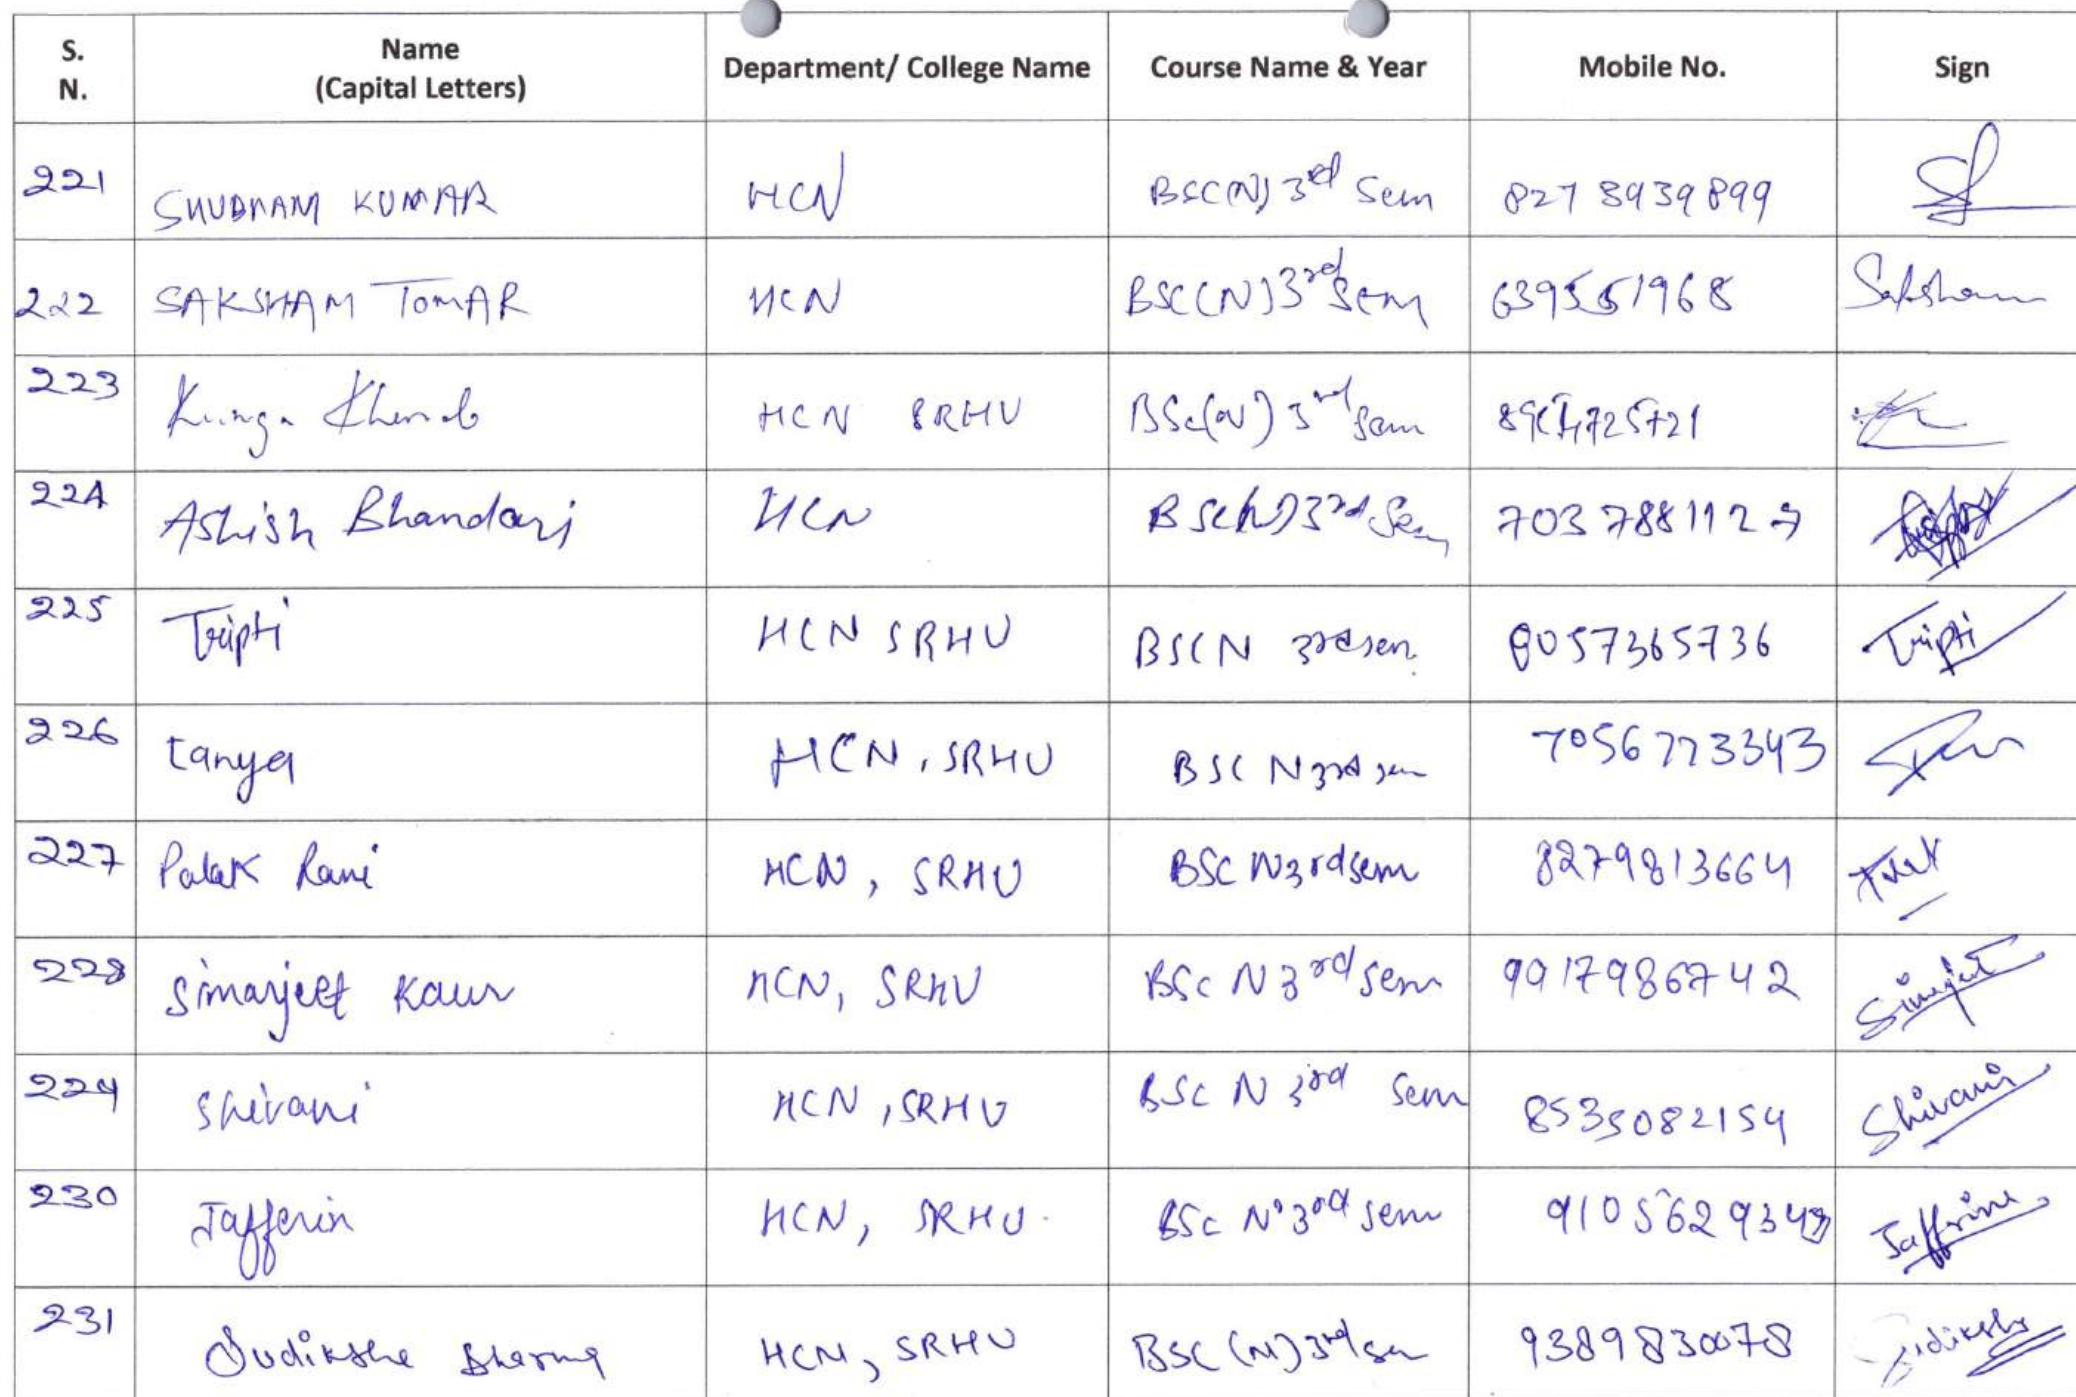 S. N. Name (Capital Letters) Department/ College Name Course Name & Year Mobile No. Sign
221 SHUBHAM KUMAR HCN BSC(N) 3rd Sem 8273939899
222 SAKSHAM TOMAR HCN BSC(N) 3rd Sem 639551968 Saksham
223 Kunga HCN SRHU BSc(N) 3rd Sem
224 Ashish Bhandari HCN BSc(N) 3rd Sem 7037881127
225 Tripti HCN SRHU BSCN 3rd sem. 8057365736 Tripti
226 tanya HCN, SRHU BSC N 3rd sem 7056773343
227 Palak Rani HCN, SRHU BSC N 3rd sem 8279813664
228 Simarjeet Kaur HCN, SRHU BSc N 3rd sem 9917986742 Simarjeet
229 Shivani HCN, SRHU BSC N 3rd Sem 8535082154 Shivani
230 Jafferin HCN, SRHU. BSc N 3rd sem Jaffrine
231 Sudiksha Sharma HCN, SRHU BSC (N) 3rd sem 9389830078 Sudiksha